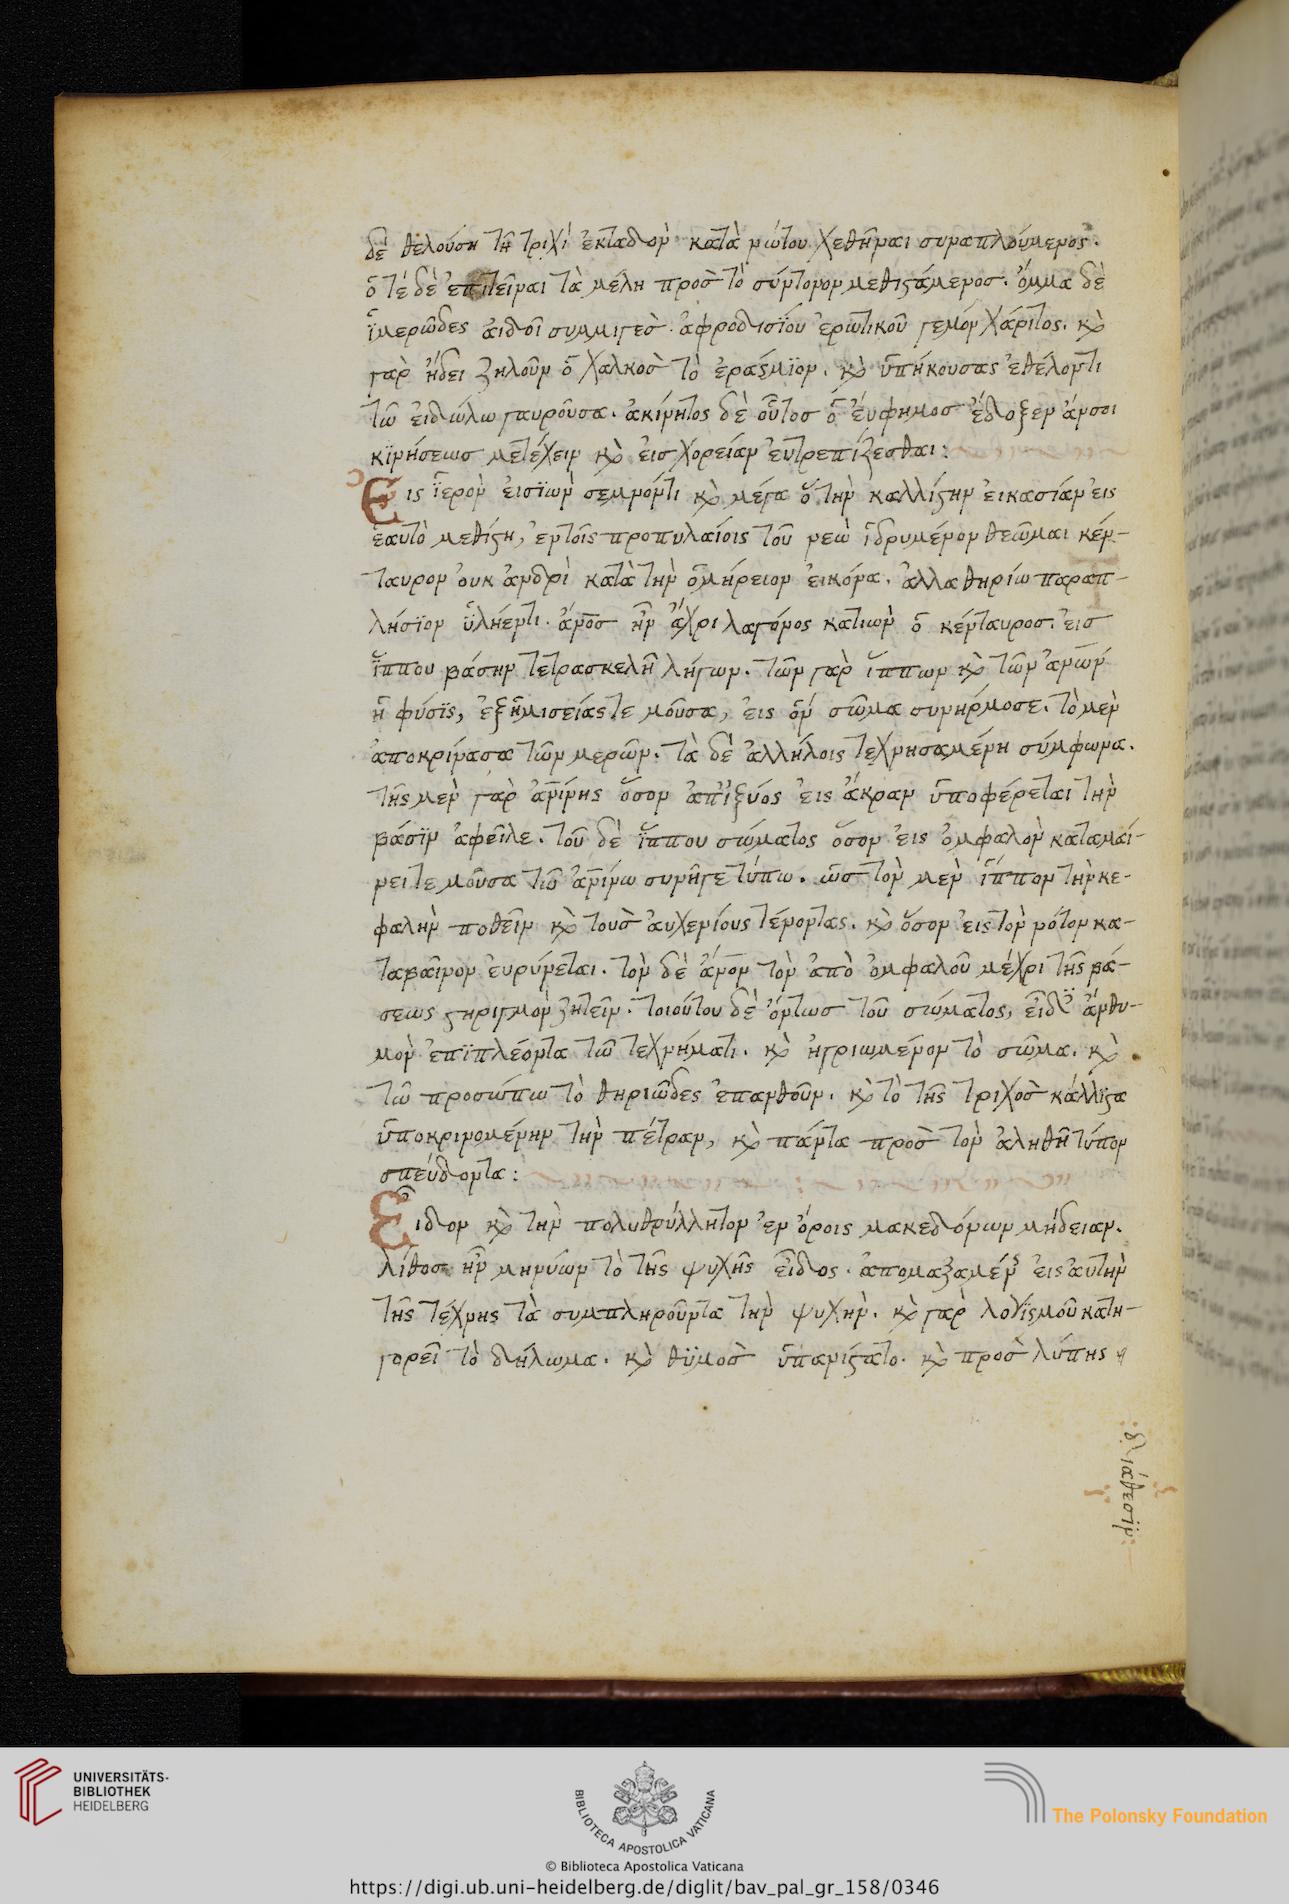 δὲ θελούση τῆ τριχὶ ἐκταδὸν κατὰ νώτου χεθῆναι συναπλούμενος.
ὁτὲ δὲ ἐπιτεῖναι τὰ μέλη προσ τὸ σύντονον μεθιστάμενος. ὄμμα δὲ
ἱμερῶδες αἰδοῖ συμμιγεσ ἀφροδισίου ἐρωτικοῦ γέμον χάριτος. κὶ
γαρ ἤδει ζηλοῦν ὁ χαλκοσ τὸ ἐράσμϊον. κὶ ὑπήκουσας ἐθέλοντι
τῶ εἰδώλω γαυροῦσα. ἀκίνητος δὲ οὗτοσ ὁ ἔυφημοσ ἔδοξεν ἄν σοι
κϊνήσεωσ μετέχειν κὶ εἰσ χορείαν εὐτρεπίζεσθαι:
Εις ἱερὸν εἰσϊὼν σεμνόντι κὶ μέγα ὃ τὴν καλλίστην εἰκασίαν εἰς
ἑαυτὸ μεθίστη, ἐν τοῖς προπυλαίοις τοῦ νεὼ ἱδρυμένον θεῶμαι κέν-
ταυρον ὀυκ ἀνδρὶ κατὰ τὴν ὁμήρειον εἰκόνα. ἀλλα θηρίω παραπ-
λήσϊον ὑλήεντι. ἄνοσ ἦν ἄχρι λαγόνος κατιων ὁ κένταυροσ. εἰσ
ἵππου βάσην τετρασκελῆ λήγων. τῶν γαρ ἵππων κὶ τῶν ἀνων
ἡ φύσϊς, ἐξ ἡμισείας τεμοῦσα, εἰς ἓν σῶμα συνήρμοσε. τὸ μεν
ἀποκρίνασα τῶν μερῶν. τὰ δὲ ἀλλήλοις τεχνησαμένη σύμφωνα.
τῆς μεν γαρ ἀνίνης ὅσον ἀπ ἰξύος εἰς ἄκραν ὑποφέρεται τὴν
βάσϊν ἀφεῖλε. τοῦ δὲ ἵππου σώματος ὅσον εἰς ὀμφαλὸν καταμαί-
νει τεμοῦσα τῶ ἀνίνω συνῆγε τύπω. ὡσ τὸν μεν ἵππον τὴν κε-
φαλὴν ποθεῖν κὶ τουσ ἀυχενίους τένοντας. κὶ ὅσον εἰς τὸν νότον κα-
ταβαῖνον εὐρύνεται. τὸν δὲ ἄνον τὸν ἀπὸ ὀμφαλοῦ μέχρι τῆς βά-
σεως στηριγμὸν ζητεῖν. τοιούτου δὲ ὄντωσ τοῦ σώματος, εἶδ ἄνθυ-
μον ἐπϊπλέοντα τῶ τεχνήματι. κὶ ἠγριωμένον τὸ σῶμα. κὶ
τῶ προσώπω τὸ θηριῶδες ἐπανθοῦν. κὶ τὸ τῆς τριχοσ κάλλϊστα
ὑποκρινομένην τὴν πέτραν, κὶ πάντα προσ τὸν ἀληθῆ τύπον
σπεύδοντα:
Εἶδον κὶ τὴν πολυθρύλλητον ἐν ὅροις μακεδόνων μήδειαν.
λίθοσ ἦν μηνύων τὸ τῆς ψυχῆς εἶδος. ἀπομαξαμέν εἰς ἀυτὴν
τῆς τέχνης τὰ συμπληροῦντα τὴν ψυχὴν. κὶ γαρ λογϊσμοῦ κατη-
γορεῖ τὸ δήλωμα. κὶ θϋμοσ ὑπανίστατο. κὶ προσ λύπης
διάθεσϊν:
UNIVERSITÄTS-
BIBLIOTHEK
HEIDELBERG
BIBLIOTECA APOSTOLICA VATICANA
The Polonsky Foundation
© Biblioteca Apostolica Vaticana
https://digi.ub.uni-heidelberg.de/diglit/bav_pal_gr_158/0346